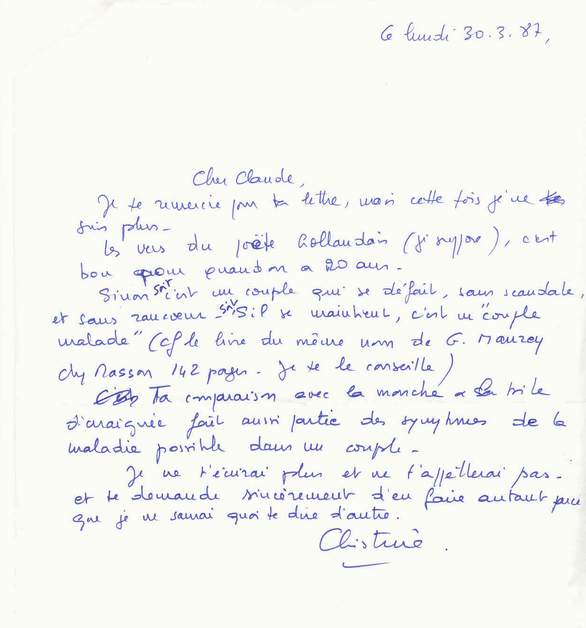 Le lundi 30.3.87,
Cher Claude,
Je te remercie pour ta lettre, mais cette fois je ne te
suis plus-
Les vers du poète hollandais (je suppose), c'est
bon pour quand on a 20 ans-
Sinon soit c'est un couple qui se défait, sans scandale,
et sans rancoeur soit s'il se maintient, c'est un "couple
malade" (cf le livre du même nom de G. Mauzey
chez Masson 142 pages- Je te le conseille)
Ta comparaison avec la mouche et la toile
d'araignée fait aussi partie des symptômes de la
maladie possible dans un couple-
Je ne t'écrirai plus et ne t'appellerai pas-
et te demande sincèrement d'en faire autant parce
que je ne saurai quoi te dire d'autre.
Christine.